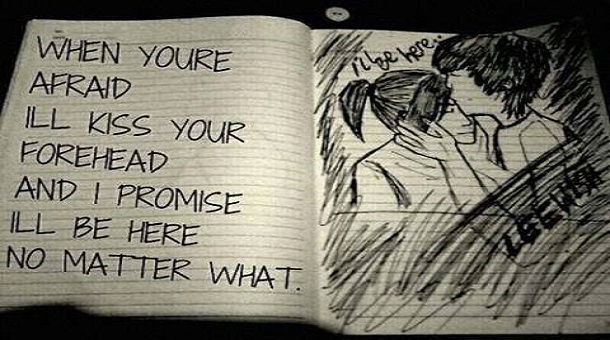 WHEN YOURE
AFRAID
ILL KISS YOUR
FOREHEAD
AND I PROMISE
ILL BE HERE
NO MATTER WHAT.
i'll be here...